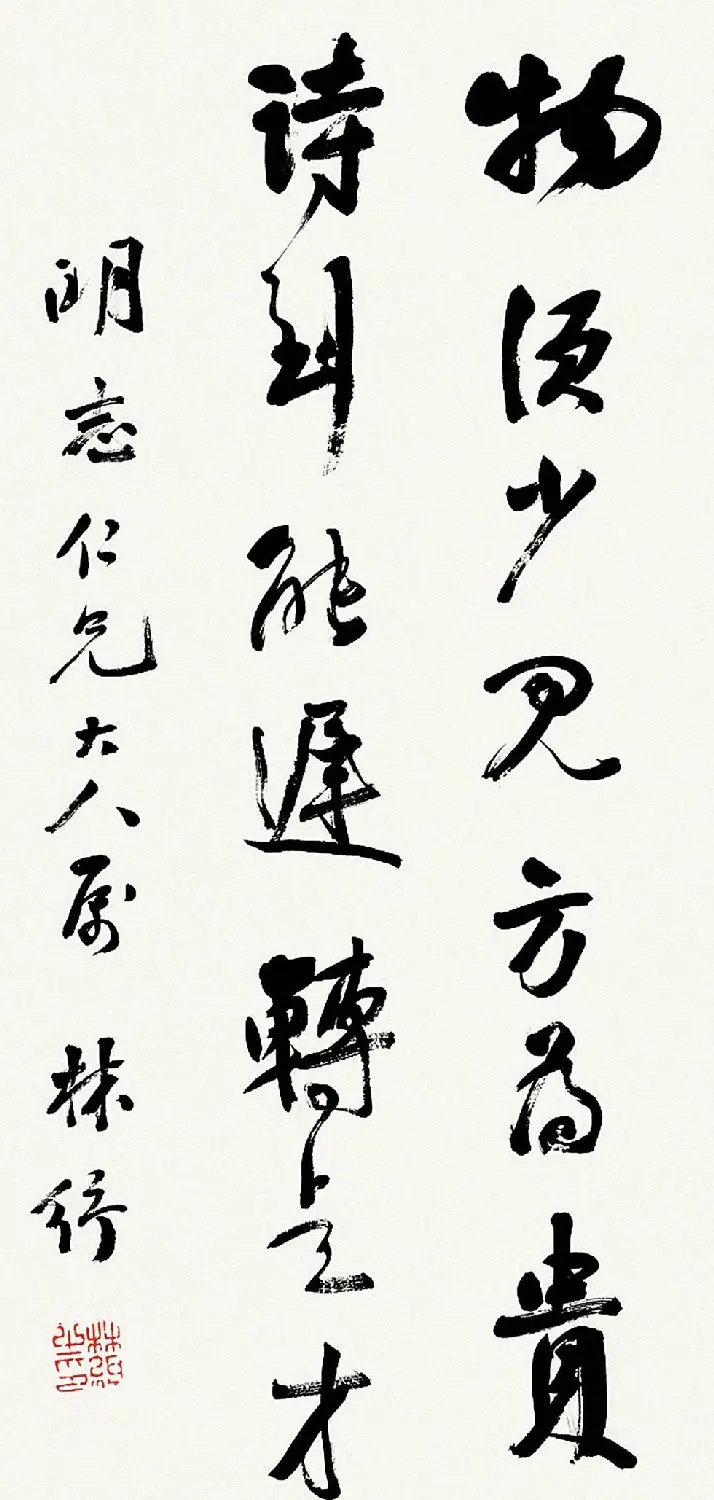 物須少見方為貴
詩到能遲轉是才
明志仁兄大人属 林紓